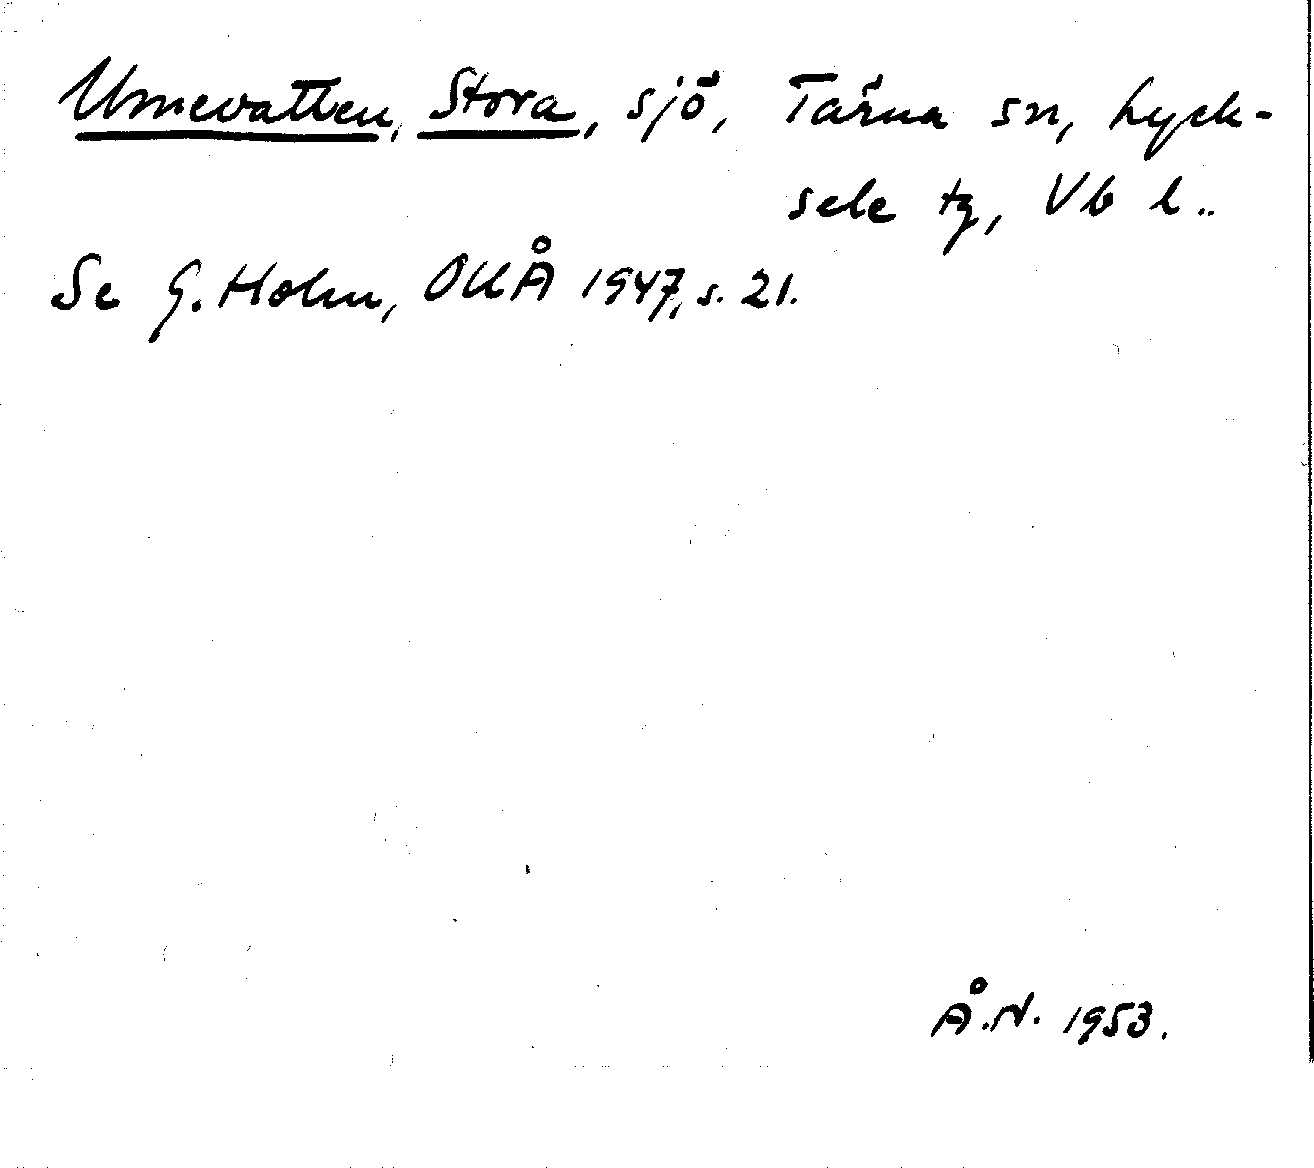 Umevatten, Stora, sjö, Tärna sn, Lyck-
sele tg, Vb l..
Se G. Holm, OUÅ 1947, s. 21.
Å.N. 1953.